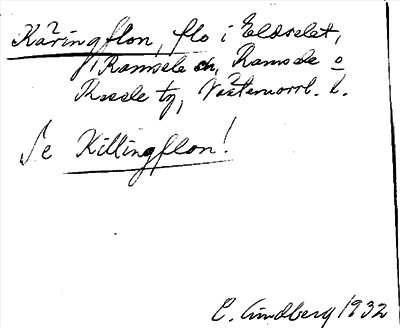 Käringflon, flo i Eldselet,
Ramsele sn, Ramsele o
Resele tg, Västernorrl. l.
Se Killingflon!
E. Lundberg 1932